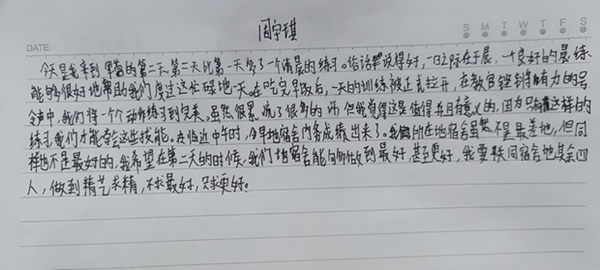 周宇琪
S M T W T F S
DATE
今天是我来到军营的第二天第二天比第一天多了一个清晨的练习。俗话说得好,一日之际在于晨,一个良好的晨练
能够很好地帮助我们度过这忙碌地一天。在吃完早饭后,一天的训练被正式拉开,在教官铿锵有力的号
令声中,我们将一个个动作练习到完美。虽然很累,流了很多的汗但我觉得这是值得并且有意义的,因为只有靠这样的
练习我们才能夺会这些技能。在临近中午时,今早地宿舍内务成绩出来了。我们所在地宿舍虽然不是最差地,但同
样也不是最好的,我希望在第二天的时候,我们地宿舍能够做到最好,甚至更好,我要联同宿舍地其余四
人,做到精艺求精,不求最好,只求更好。